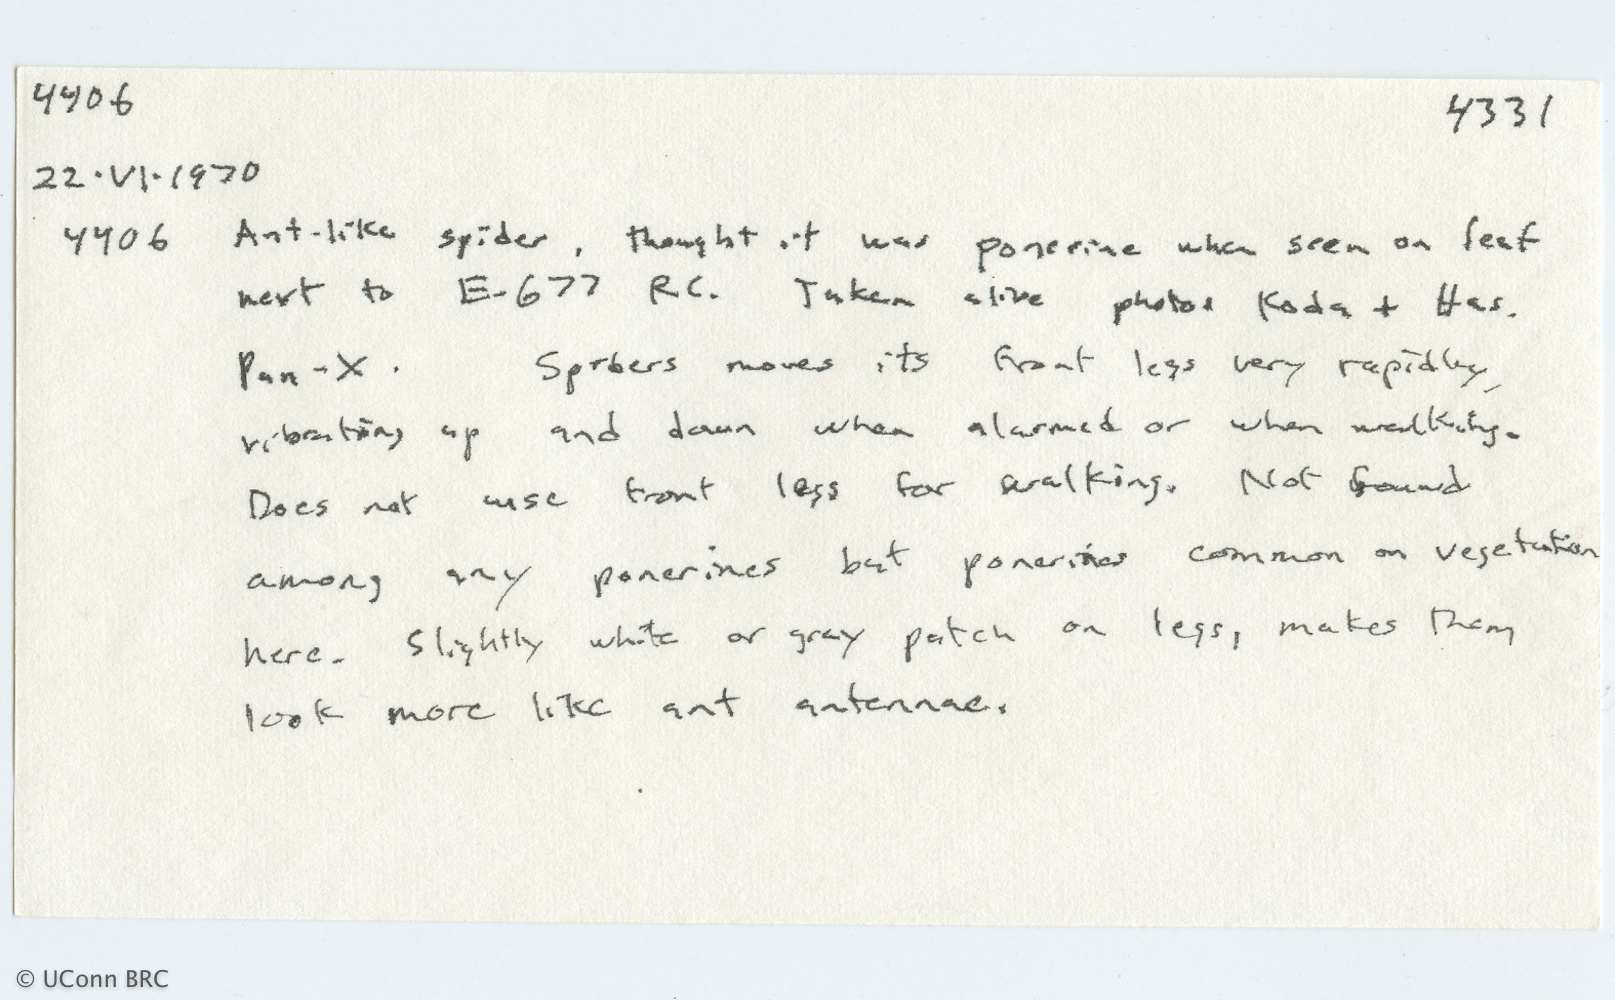 4406 4331
22·VI·1970
4406 Ant-like spider, thought it was ponerine when seen on leaf
next to E-677 RC. Taken alive photos Koda + Has.
Pan-X. moves its front legs very rapidly,
vibrating up and down when alarmed or when walking.
Does not use front legs for walking. Not found
among any ponerines but ponerines common on vegetation
here. Slightly white or gray patch on legs, makes them
look more like ant antennae.
© UConn BRC